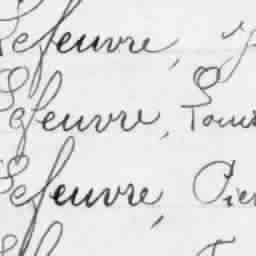 Lefeuvre,
Lefeuvre, Louis
Lefeuvre, Pier